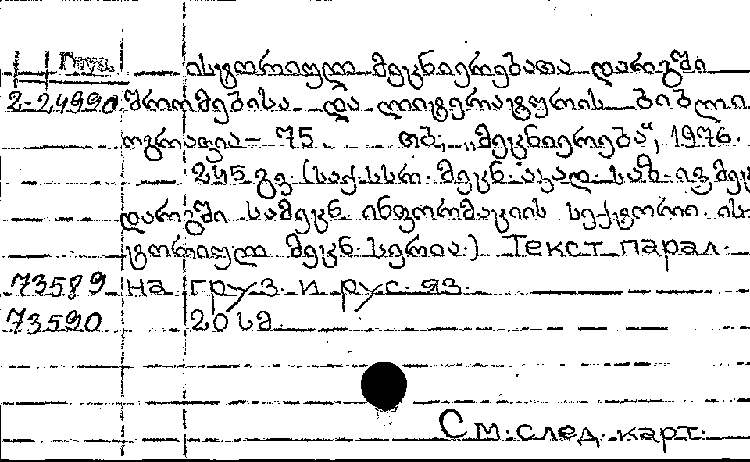 Груз.
ისტორიულ მეცნიერებათა დარგში
2-24990 შრომებისა და ლიტერატურის ბიბლი
ოგრაფია - 75 თბ., „მეცნიერება“, 1976.
245 გვ. (საქ. სსრ. მეცნ. აკად. საზ-
დარგში სამეცნ. ინფორმაციის სექტორი. ის-
ტორიულ მეცნ. სერია.) Текст парал.
73589 на груз. и рус. яз.
73590
См. след. карт.